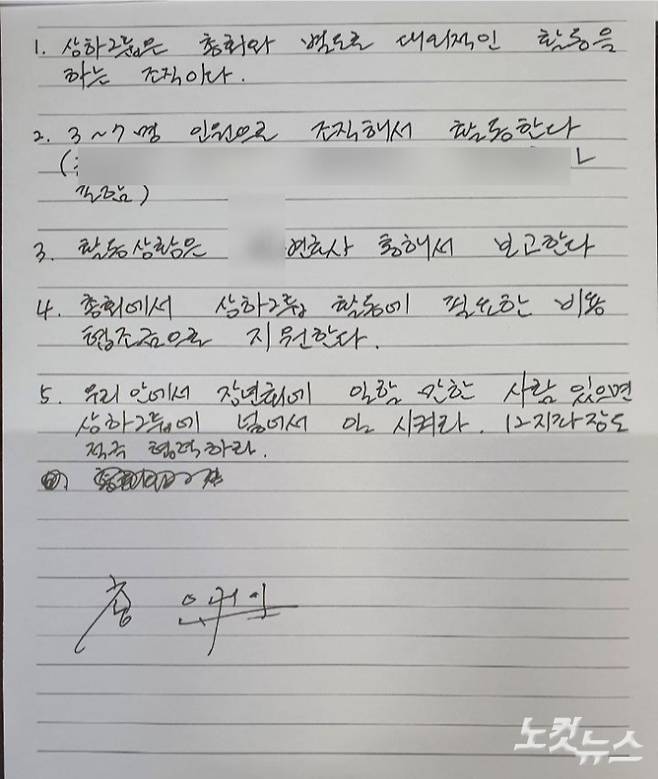 1. 상하그룹은 총회와 별도로 대외적인 활동을
하는 조직이다.
2. 3~7명 인원으로 조직해서 활동한다
(
필함)
3. 활동상황은 변호사 통해서 보고한다
4. 총회에서 상하그룹 활동에 필요한 비용
협조금으로 지원한다.
5. 우리 안에서 장년회에 일할 만한 사람 있으면
상하그룹에 넣어서 일 시켜라. 12지파장도
적극 협력하라.
총
노컷뉴스